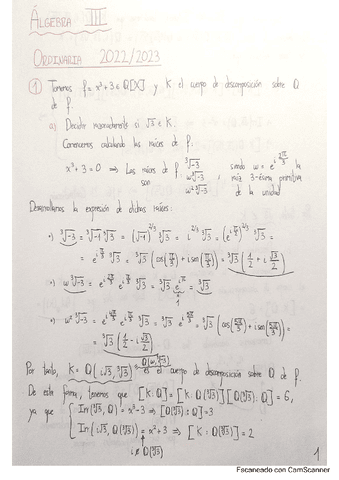 ÁLGEBRA III
ORDINARIA 2022/2023
① Tomemos f = x³+3 ∈ Q[X] y K el cuerpo de descomposición sobre Q
de f.
a) Decidir razonadamente si √3 ∈ K.
Comencemos calculando las raíces de f.
x³+3 = 0 ⟹ Las raíces de f son ∛-3, ω∛-3, ω²∛-3, siendo ω = e^{i 2π/3} la
raíz 3-ésima primitiva
de la unidad
Desarrollamos la expresión de dichas raíces:
•) ∛-3 = ∛-1 ∛3 = (√-1)^{2/3} ∛3 = i^{2/3} ∛3 =
= e^{i π/3} ∛3 = ∛3 (cos(π/3) + i sen(π/3)) = ∛3 (1/2 + i √3/2)
•) ω ∛-3 = e^{i 2π/3} e^{i π/3} ∛3 = ∛3 e^{iπ} = ∛3
•) ω² ∛-3 = ∛3 = ∛3 e^{i 5π/3} = ∛3 (cos(5π/3) + i sen(5π/3)) =
= ∛3 (1/2 - i √3/2)
Por tanto, K = Q(i√3, ∛3) es el cuerpo de descomposición sobre Q de f.
De esta forma, tenemos que [K:Q] = [K:Q(∛3)][Q(∛3):Q] = 6,
ya que Irr(∛3, Q) = x³-3 ⟹ [Q(∛3):Q] = 3
Irr(i√3, Q(∛3)) = x²+3 ⟹ [K:Q(∛3)] = 2
i ∉ Q(∛3)
1
Escaneado con CamScanner